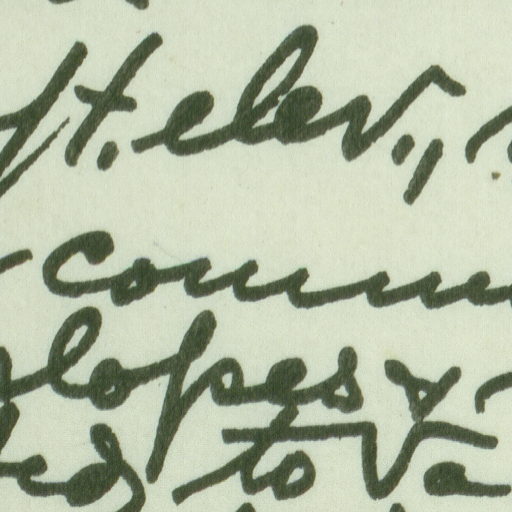 ft. elev.,
comm
slopes &
to Va